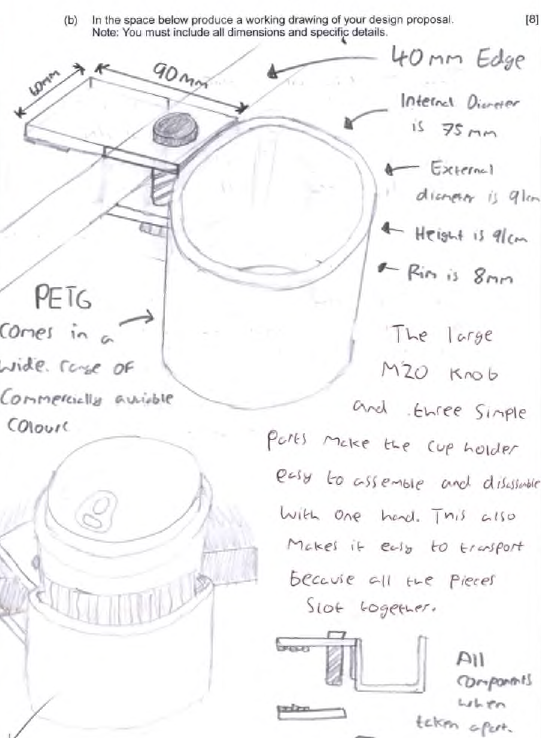 (b) In the space below produce a working drawing of your design proposal. [8]
Note: You must include all dimensions and specific details.
60mm
90mm
40mm Edge
Internal Diameter
is 75mm
External
diameter is 91cm
Height is 91cm
Rim is 8mm
PETG
Comes in a
wide range of
Commercially
Colour
The large
M20 Knob
and three Simple
Parts Make the Cup holder
easy to assemble and
with one hand. This also
Makes it easy to transport
because all the Pieces
Slot together.
All
Components
when
taken apart.